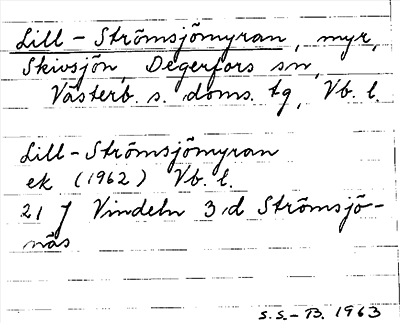 Lill-Strömsjömyran, myr,
Skivsjön, Degerfors sn,
Västerb. s. doms. tg, Vb. l.
Lill-Strömsjömyran
ek (1962) Vb. l.
21 J Vindeln 3 d Strömsjö-
näs
S.S.-B. 1963